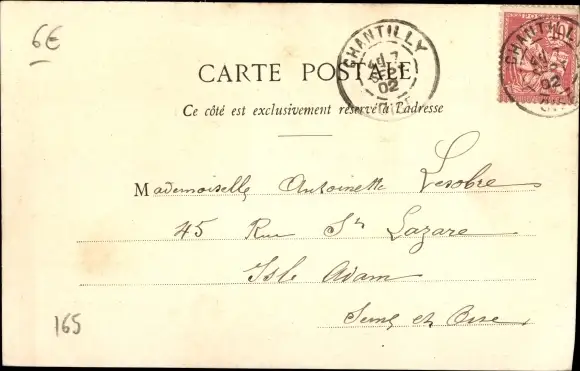 6€
CHANTILLY
7
SEPT
02
OISE
POSTES
10
CHANTILLY
7
02
CARTE POSTALE
Ce côté est exclusivement réservé à l'adresse
Mademoiselle Antoinette Lesobre
45 Rue St Lazare
Isle Adam
Seine et Oise
165